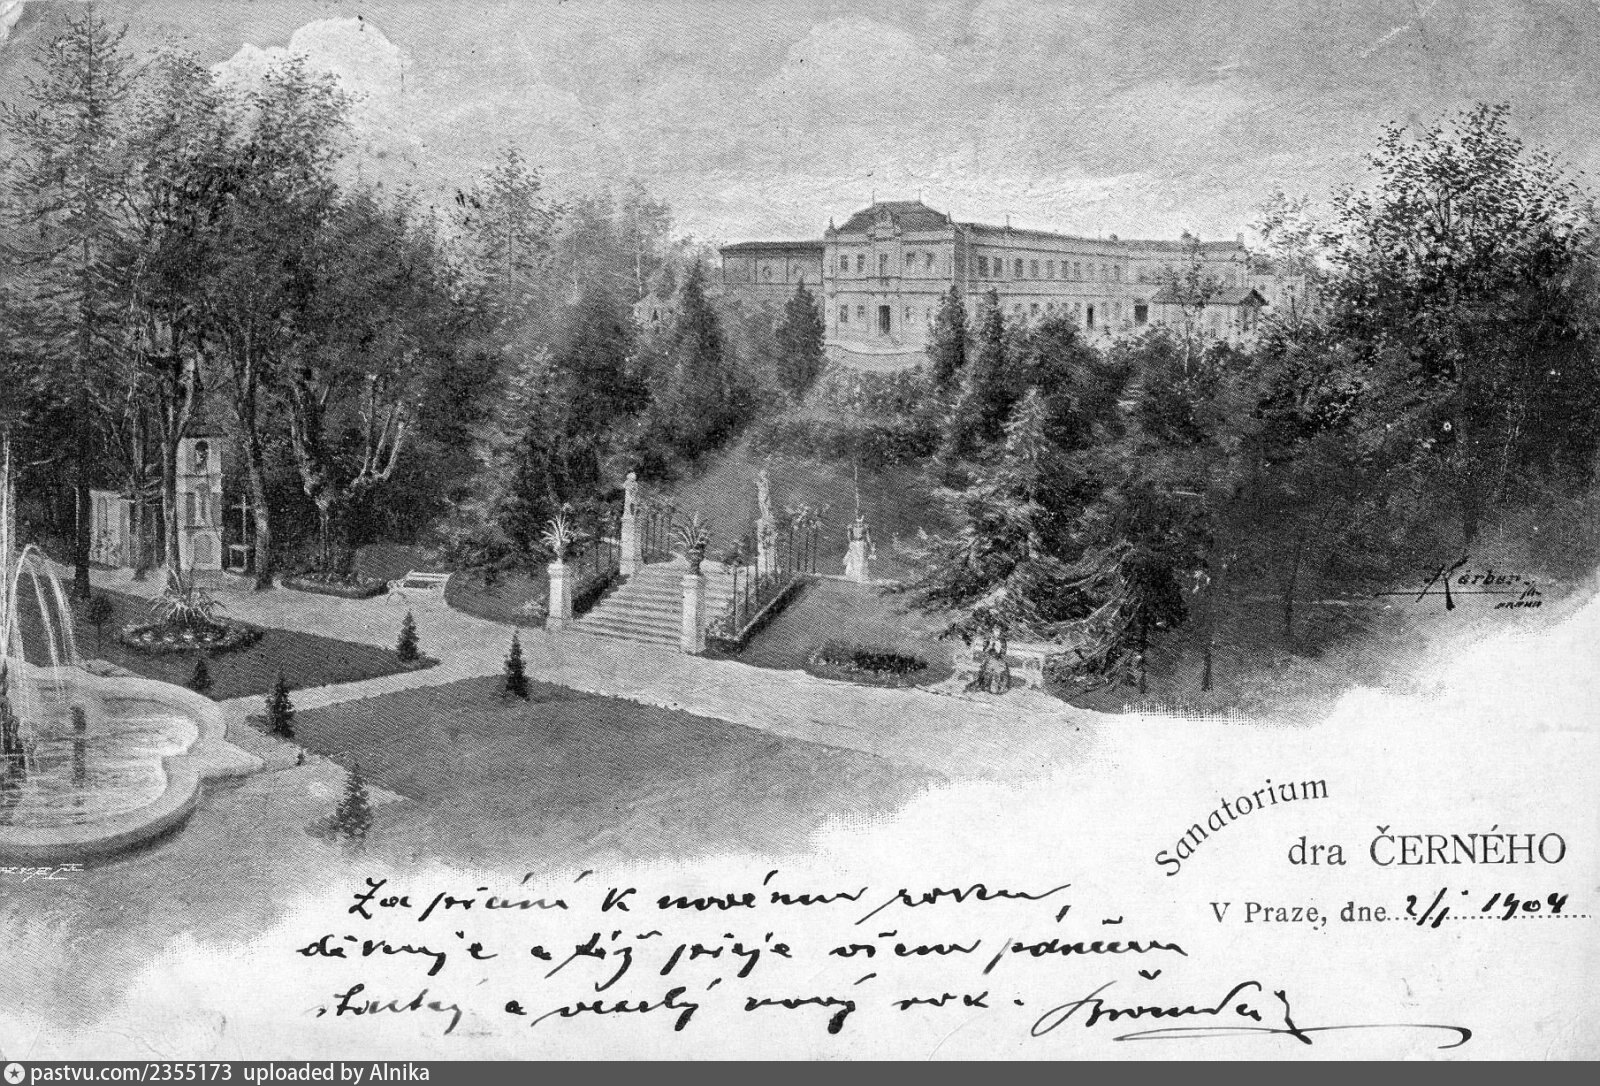 Kärber
PRAHA
Sanatorium
dra ČERNÉHO
V Praze, dne 2/I 1904
Za přání k novému roku,
děkuje a též přeje všem pánům
šťastný a veselý nový rok.
pastvu.com/2355173 uploaded by Alnika